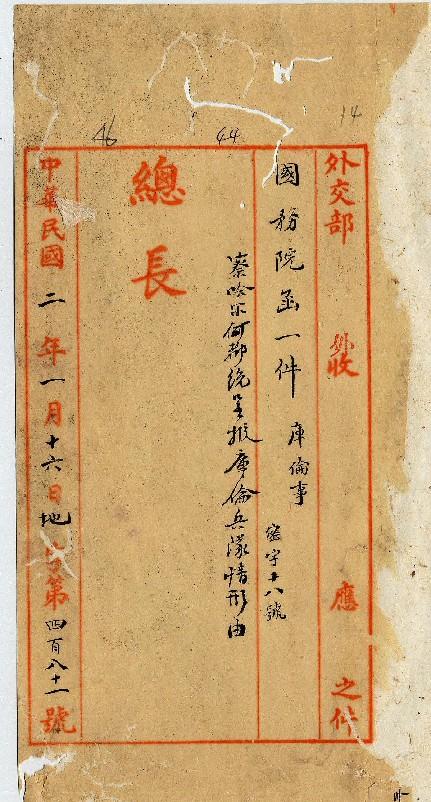 14
44
46
外交部 收 應 之件
國務院函一件 庫倫事
密字十八號
察哈尔何都統呈报庫倫兵隊情形由
總長
中華民國二年一月十六日地字第四百八十一號